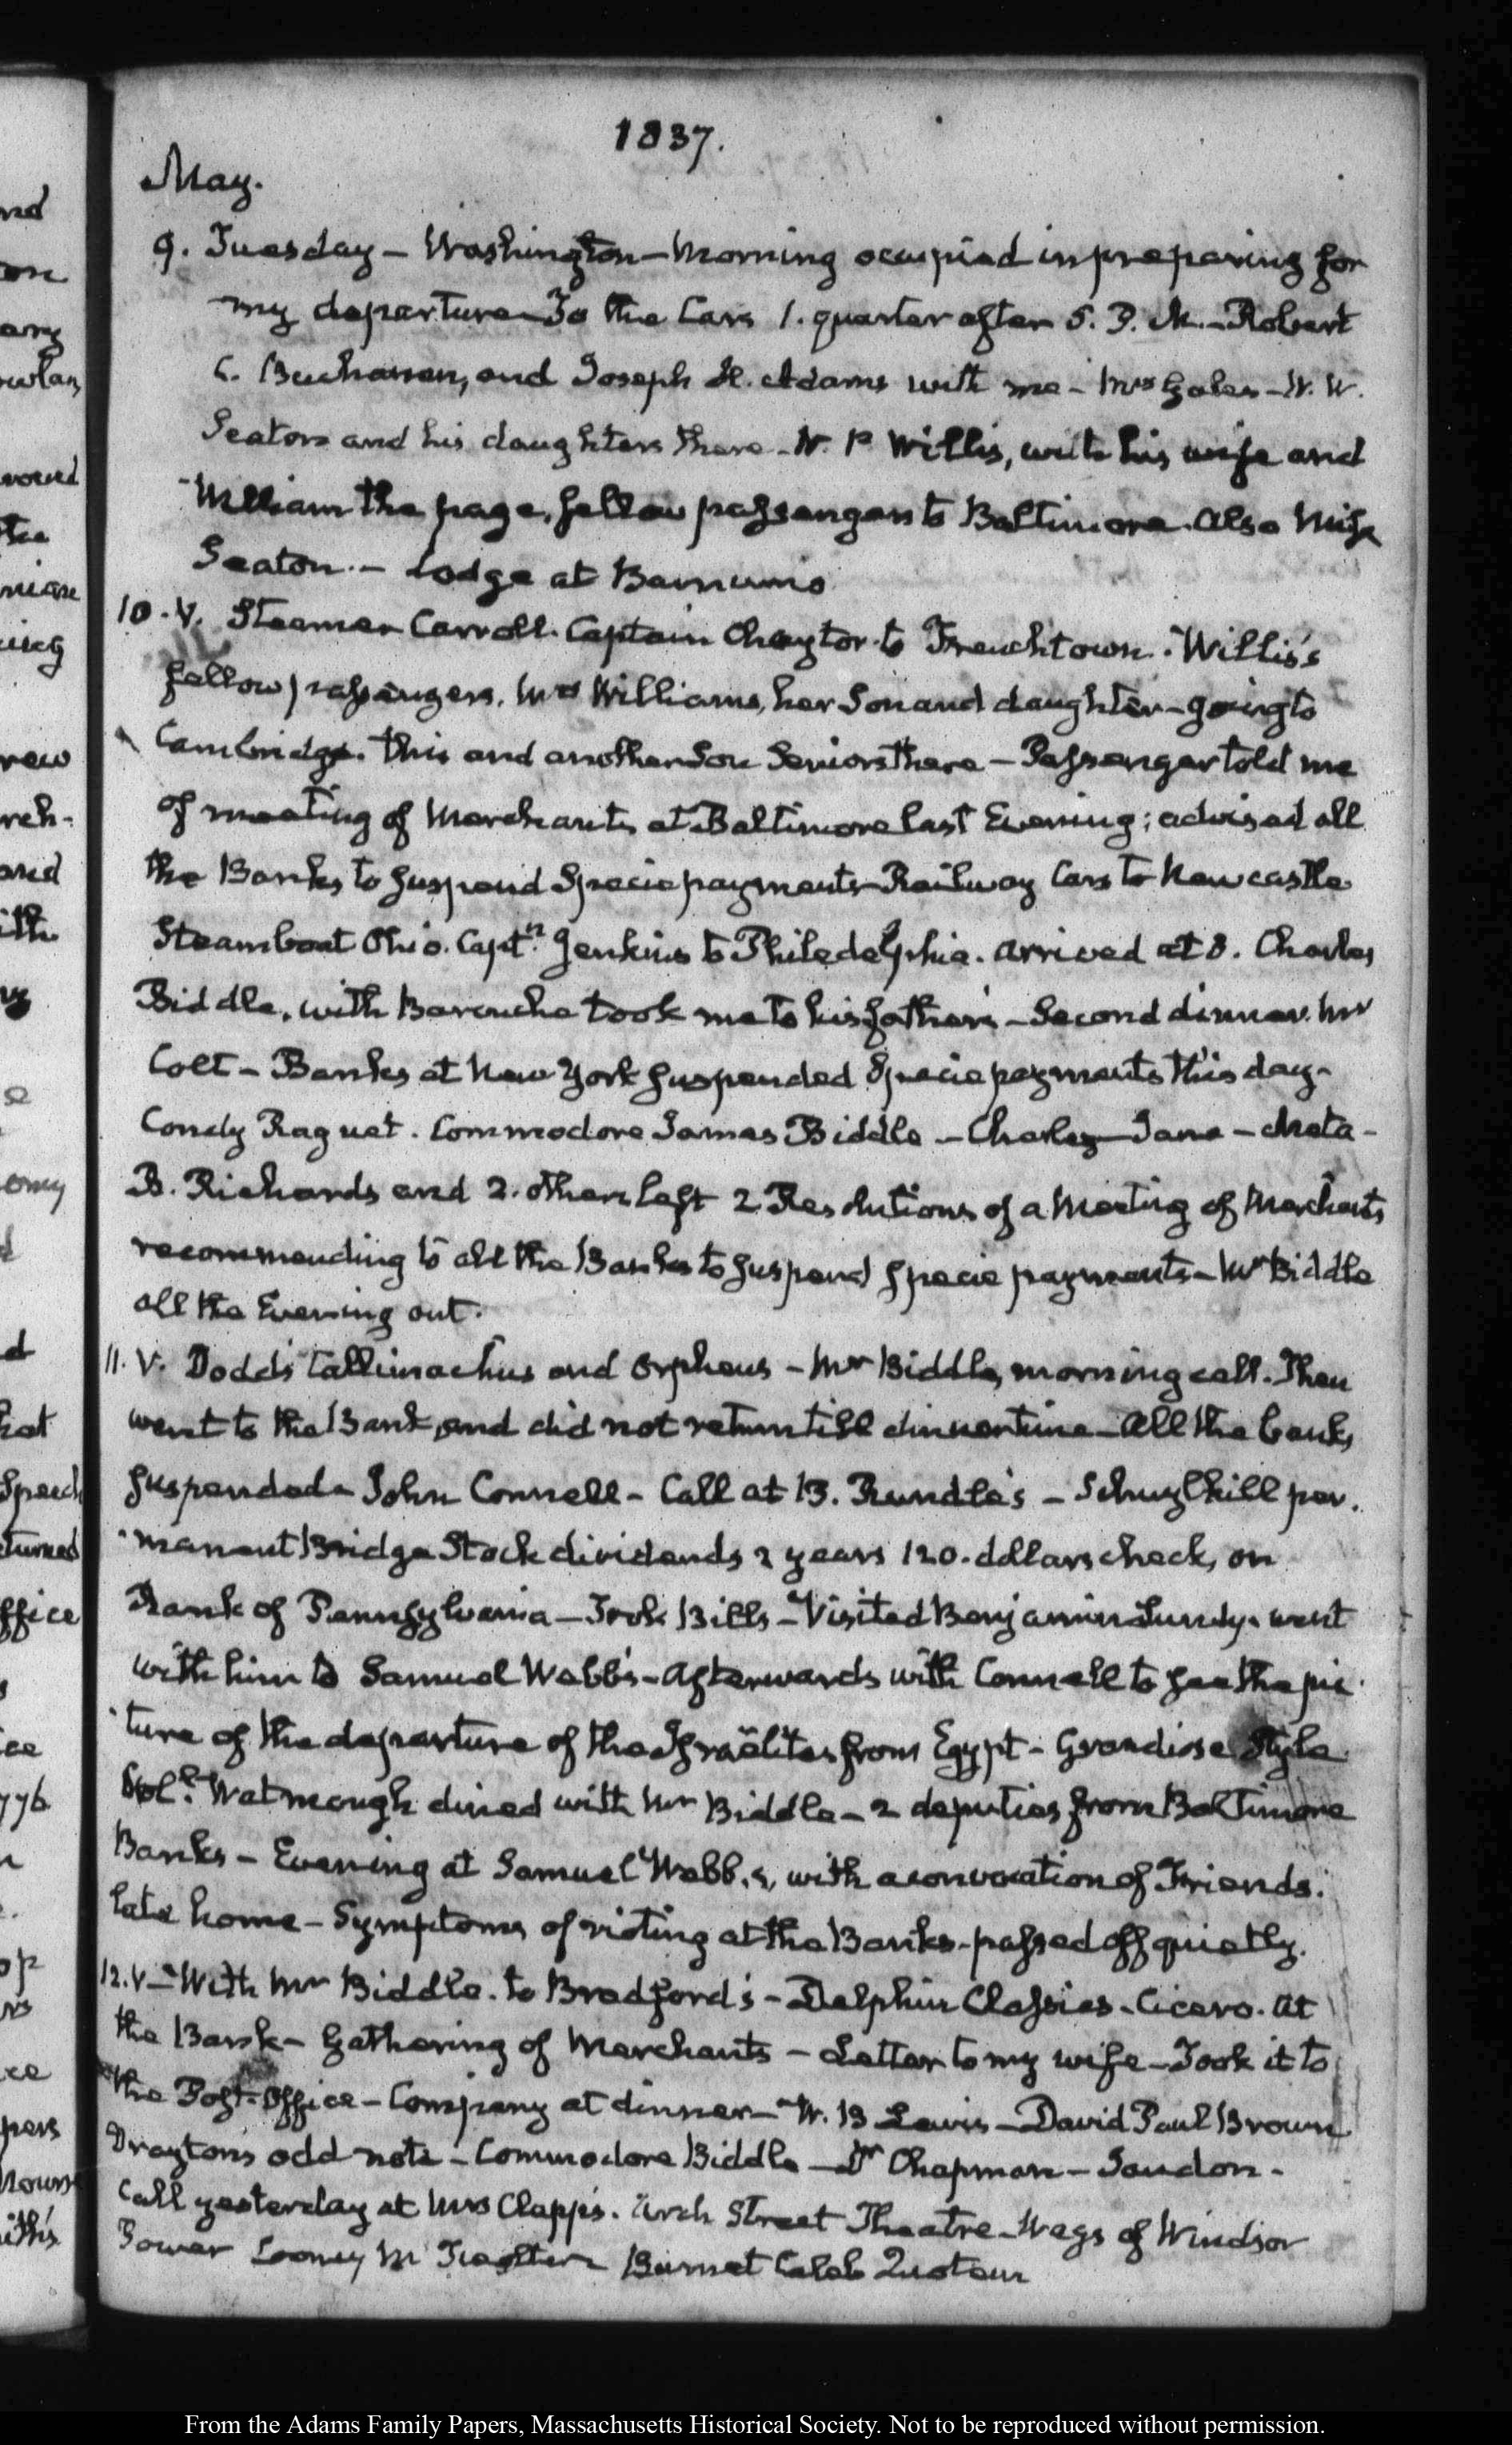 1837.
May.
9. Tuesday – Washington – Morning occupied in preparing for
my departure – To the Cars 1. quarter after 5. P. M. – Robert
C. Buchanan, and Joseph H. Adams with me – Mrs Gales – W. W.
Seaton and his daughters there – N. P. Willis, with his wife and
William the page, fellow passengers to Baltimore. Also Miss
Seaton. – Lodge at Barnum's
10. V. Steamer Carroll. Captain Chaytor to Frenchtown. Willis's
fellow passengers. Mrs Williams, her Son and daughter – going to
Cambridge. This and another Son Seniors there – Passenger told me
of meeting of Merchants at Baltimore last Evening; advised all
the Banks to suspend Specie payments – Railway Cars to Newcastle
Steamboat Ohio. Captn. Jenkins to Philadelphia. arrived at 8. Charles
Biddle, with Barouche took me to his father's – Second dinner. Mr
Colt – Banks at New York suspended Specie payments this day –
Condy Raguet. Commodore James Biddle – Charles – Jane – Meta –
B. Richards and 2. others left 2 Resolutions of a Meeting of Merchants
recommending to all the Banks to suspend specie payments – Mr Biddle
all the Evening out.
11. V. Dodd's Callimachus and Orpheus – Mr Biddle, morning call. Then
went to the Bank, and did not return till dinner time – All the banks
suspended – John Connell – Call at B. Rundle's – Schuylkill per.
manent Bridge Stock dividends 2 years 120. dollars check, on
Bank of Pennsylvania – Took Bills – Visited Benjamin Lundy. went
with him to Samuel Webb's – Afterwards with Connell to see the pic
ture of the departure of the Israëlites from Egypt – Grandiose Style
Coll. Watmough dined with Mr Biddle – 2 deputies from Baltimore
Banks – Evening at Samuel Webb's, with a convocation of Friends.
late home – Symptoms of rioting at the Banks – passed off quietly.
12. V – With Mr Biddle. to Bradford's – Delphin Classics – Cicero. At
the Bank – Gathering of Merchants – Letter to my wife – Took it to
the Post-Office – Company at dinner – W. B Lewis – David Paul Brown
Drayton's odd note – Commodore Biddle – Dr Chapman – Saudon –
Call yesterday at Mrs Clapp's. Arch Street Theatre – Wags of Windsor
Power Looney Mc Burnet Caleb Quotem
nd
on
any
would
the
rew
and
ith
e
omy
d
hat
Speech
turned
ffice
ce
776
op
ce
pers
this
From the Adams Family Papers, Massachusetts Historical Society. Not to be reproduced without permission.